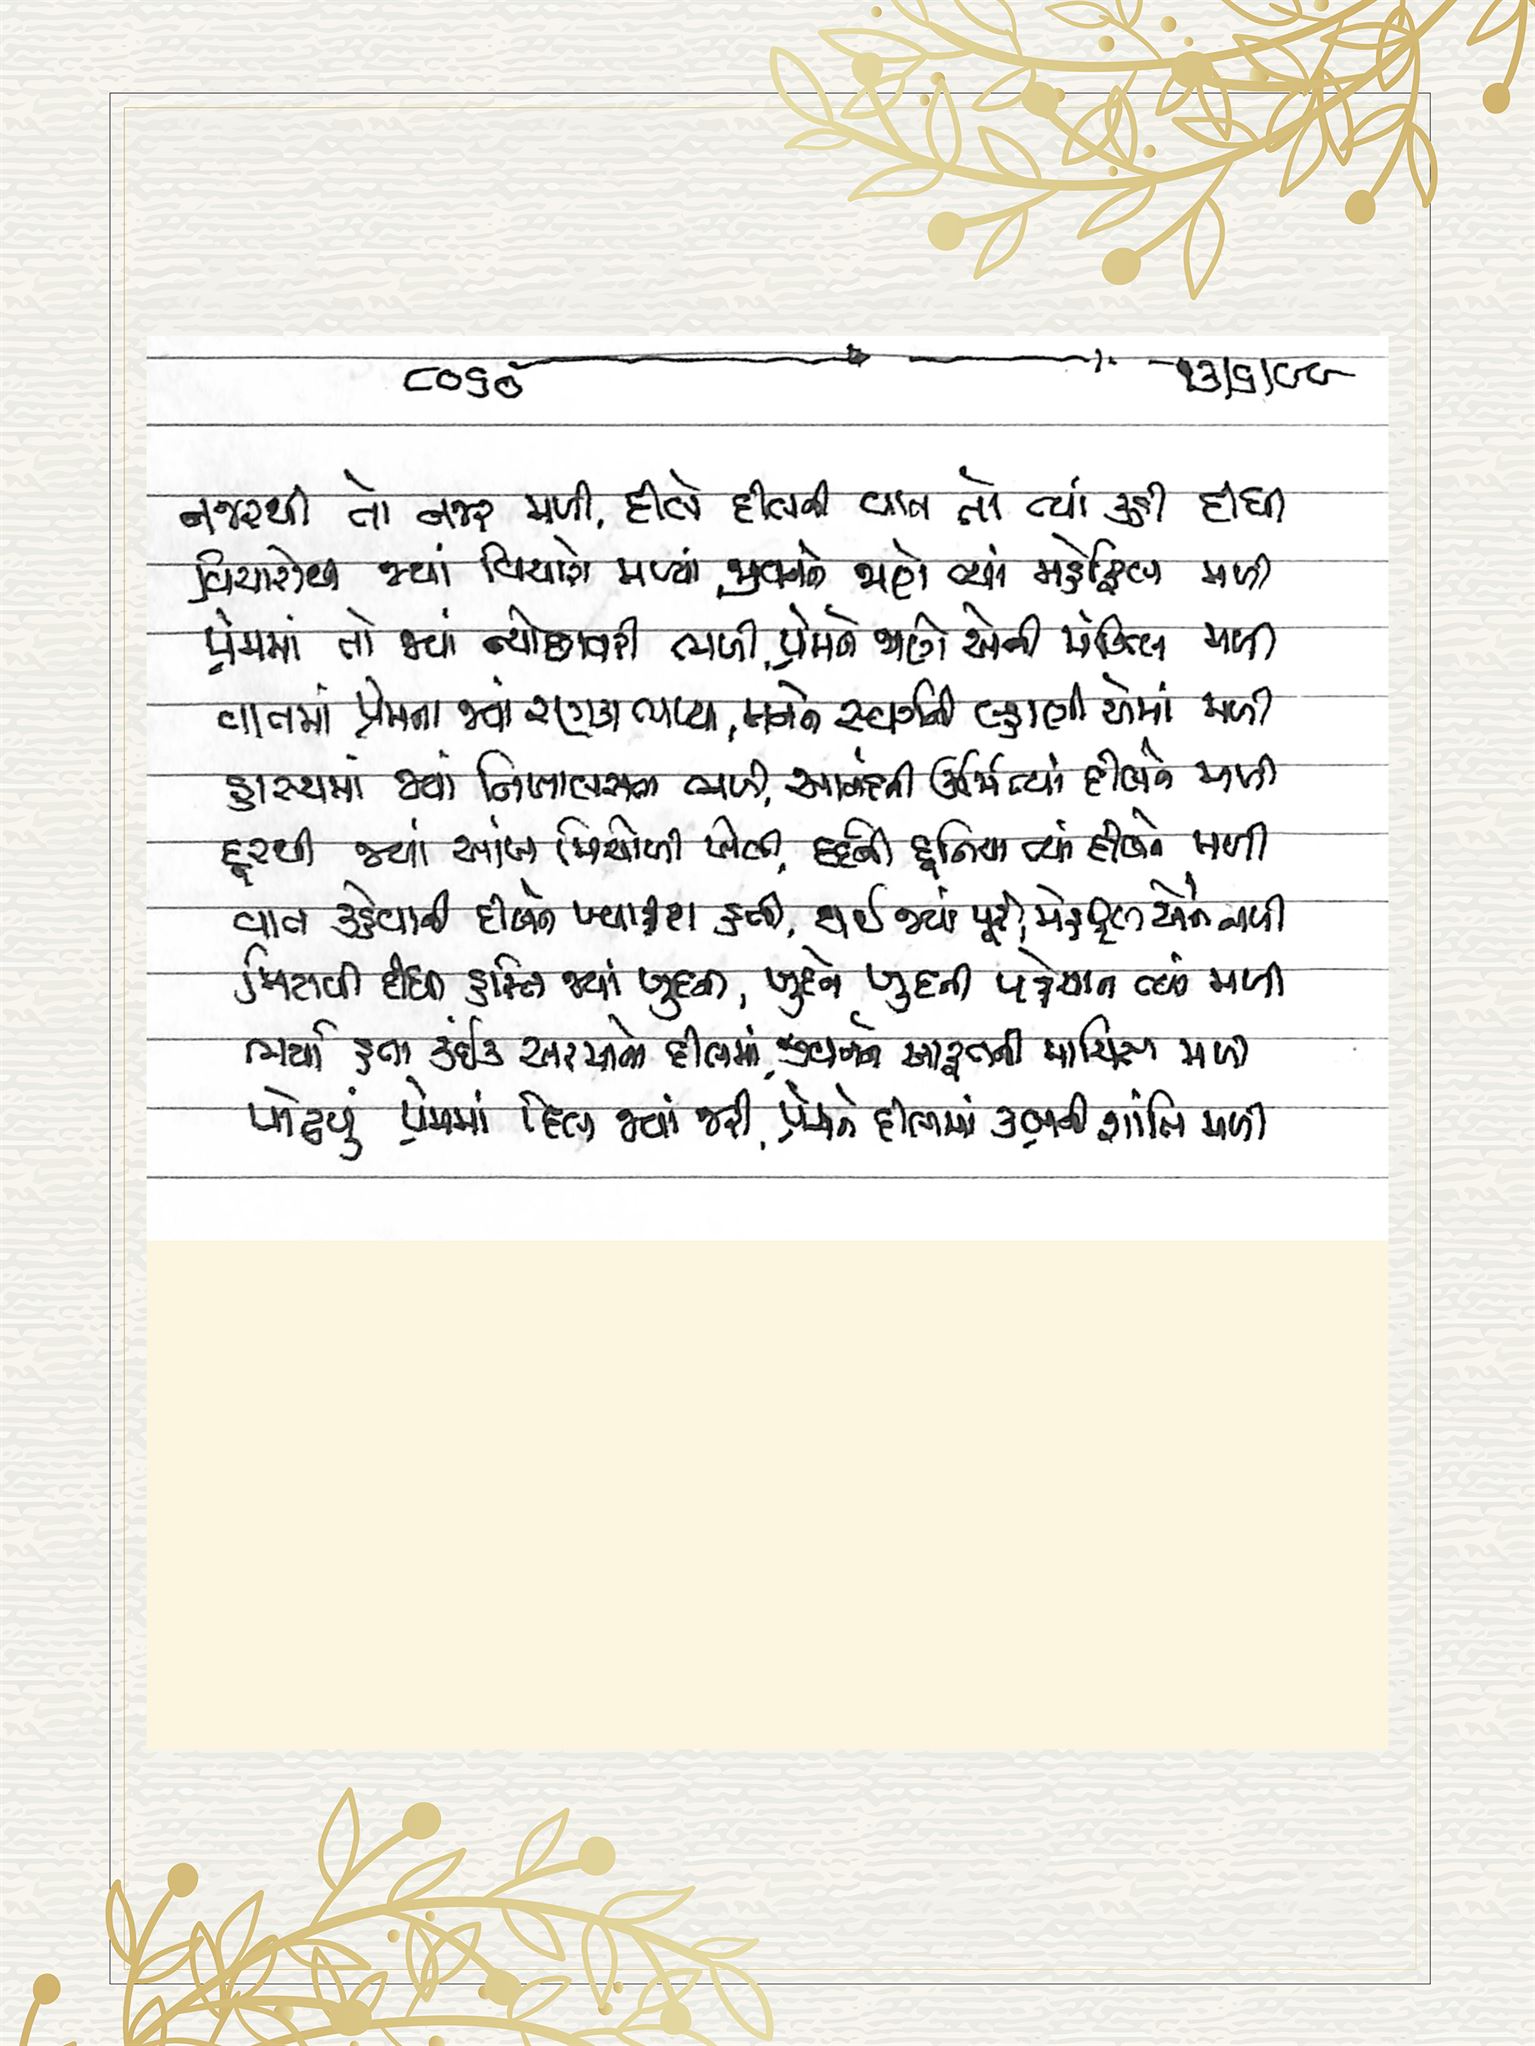 ૮૦૬૭ ૧૩/૬/૯૯
નજરથી તો નજર મળી, દીલે દીલની વાત તો ત્યાં કહી દીધી
વિચારોથી જ્યાં વિચારો મળ્યાં, જીવનને જાણે ત્યાં મહેફિલ મળી
પ્રેમમાં તો જ્યાં ન્યોછાવરી ભળી, પ્રેમને જાણે એની મંઝિલ મળી
વાતમાં પ્રેમના જ્યાં રણકા ભળ્યા, મનને સ્વર્ગની લહાણી એમાં મળી
હાસ્યમાં જ્યાં નિખાલસતા ભળી, આનંદની ઊર્મિ ત્યાં દીલને મળી
દૂરથી જ્યાં આંખ મિચોળી ખેલી, દર્દની દુનિયા ત્યાં દીલને મળી
વાત કહેવાની દીલને ખ્વાહીશ હતી, થઈ જ્યાં પૂરી, મહેફીલ એને મળી
મિટાવી દીધી હસ્તિ જ્યાં ખુદની, ખુદને ખુદની પહેચાન ત્યાં મળી
ભર્યા હતા કંઈક અરમાનો દીલમાં, જીવનને આફતની મળી
પોઢયું પ્રેમમાં દિલ જ્યાં જરી, પ્રેમને દીલમાં શાંતિ મળી